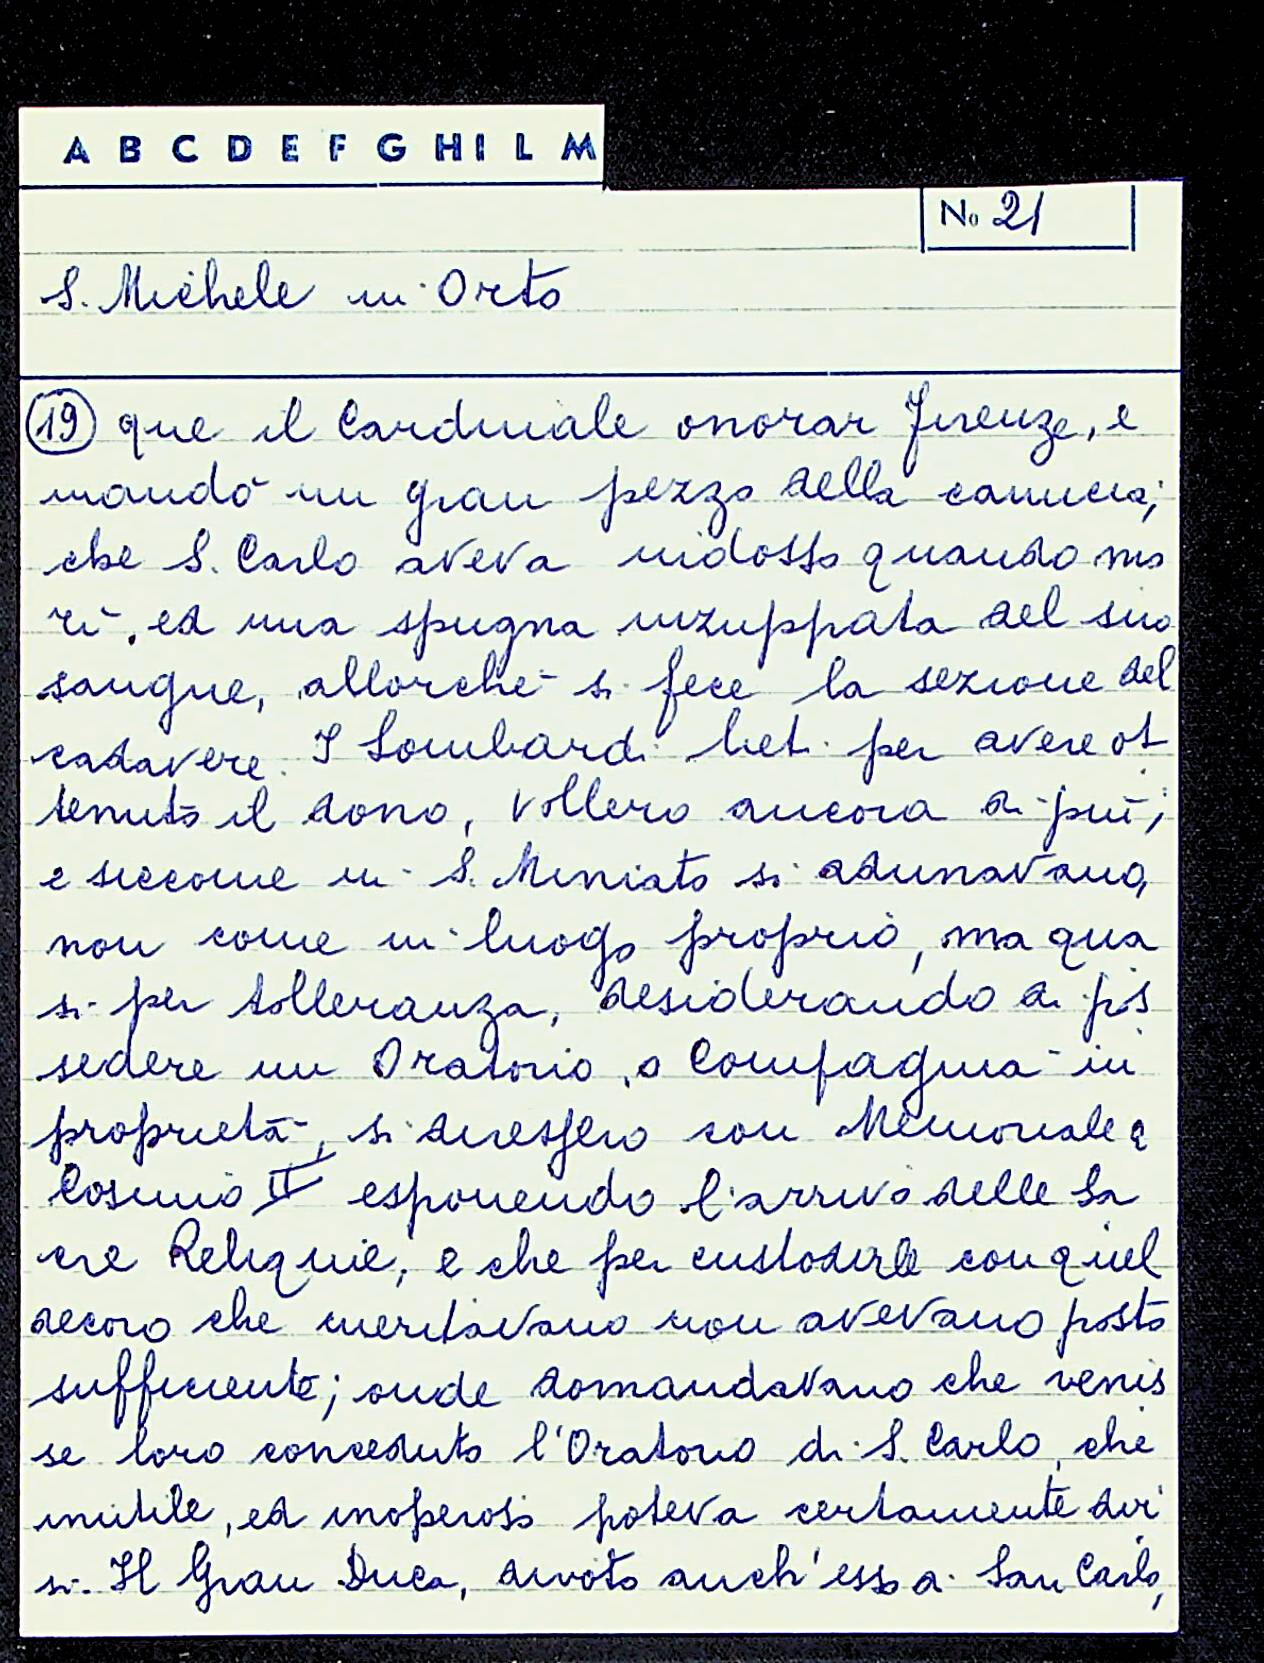 A B C D E F G H I L M
No 21
S. Michele in Orto
19 que il Cardinale onorar Firenze, e
mandò un gran pezzo della camicia,
che S. Carlo aveva indosso quando mo
rì, ed una spugna inzuppata del suo
sangue, allorchè si fece la sezione del
cadavere. I Lombardi lieti per avere ot
tenuto il dono, vollero ancora di più;
e siccome in S. Miniato si adunavano,
non come in luogo proprio, ma qua
si per tolleranza, desiderando di pos
sedere un Oratorio, o Compagnia in
proprietà, si diressero con Memoriale a
Cosimo II esponendo l'arrivo delle Sa
cre Reliquie, e che per custodirle con quel
decoro che meritavano non avevano posto
sufficiente; onde domandavano che venis
se loro conceduto l'Oratorio di S. Carlo, che
inutile, ed inoperoso poteva certamente dir
si. Il Gran Duca, divoto anch'esso a San Carlo,